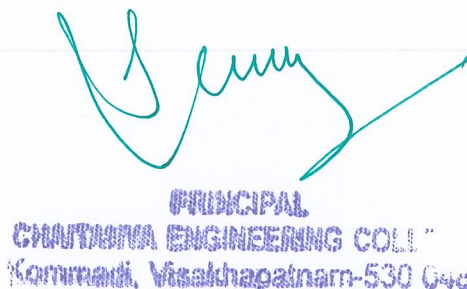 PRINCIPAL
ENGINEERING COLL
Kommadi, Visakhapatnam-530 048